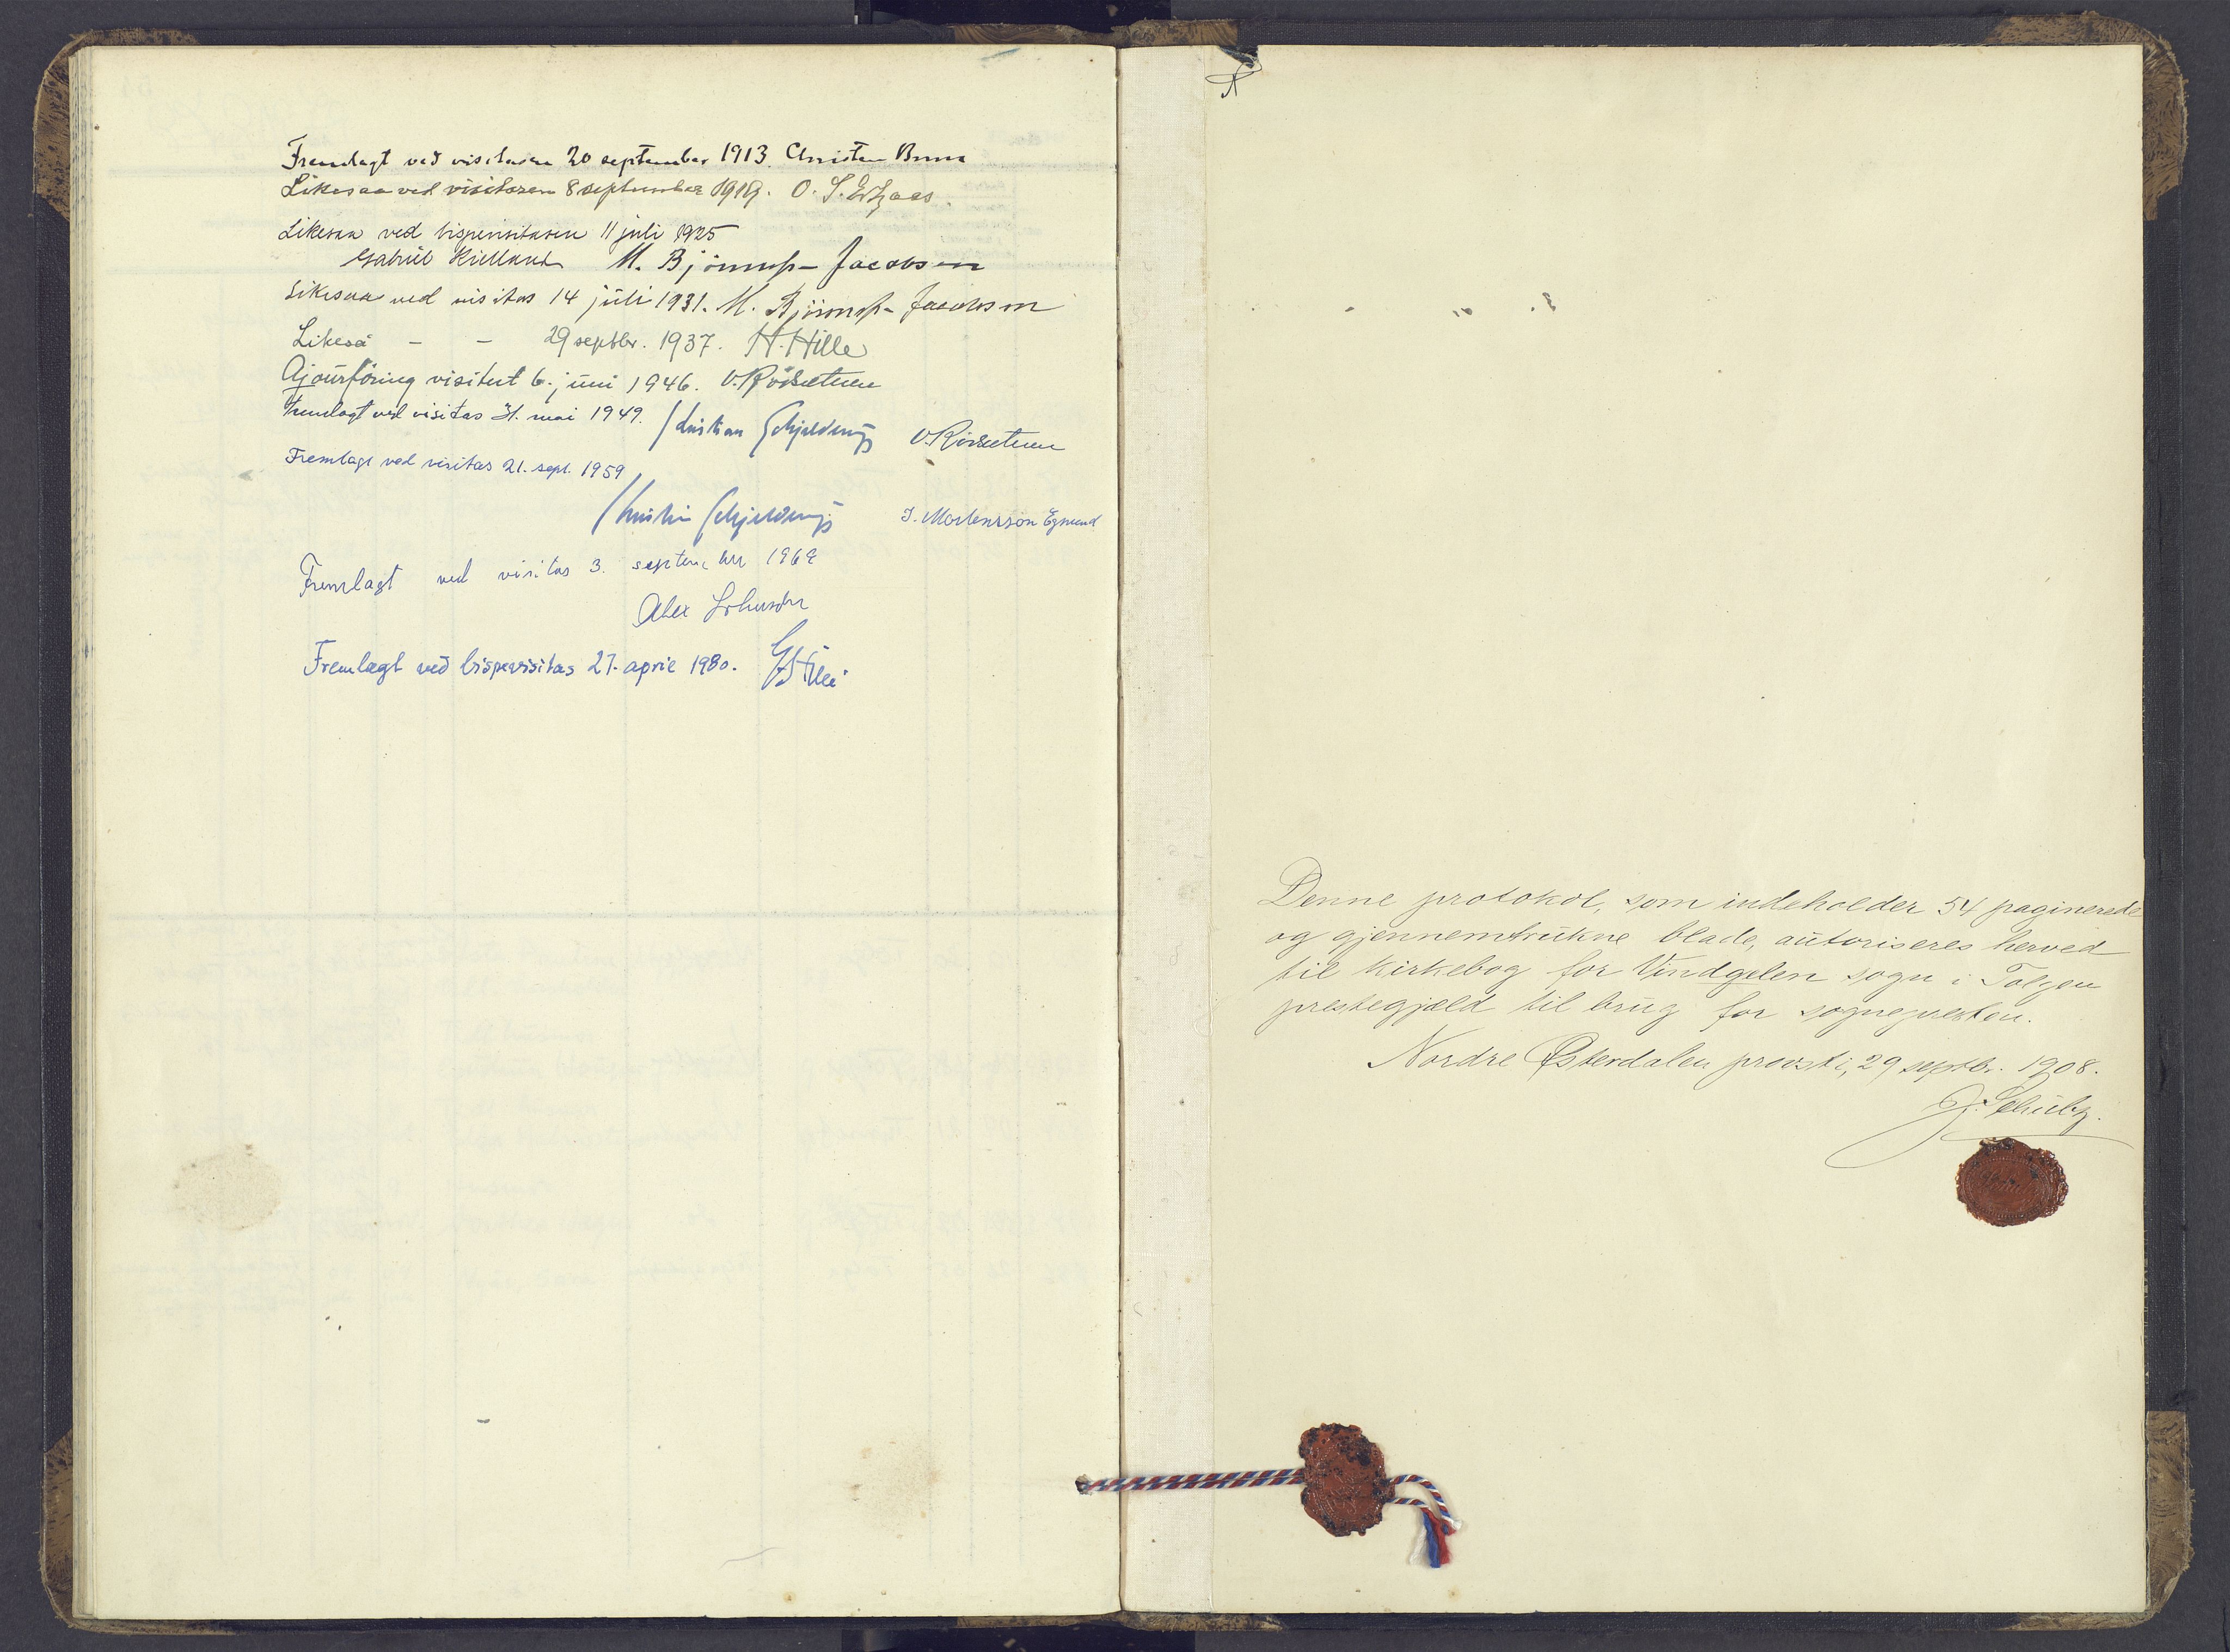 Fremlagt ved visitasen 20 september 1913. Christen Brun
Likesaa ved visitasen 8. september 1919. O. S.
Likesaa ved bispevisitasen 11 juli 1925
Gabriel Kielland M. Bjönness-Jacobsen
Likesaa ved visitas 14 juli 1931. M. Bjönness-Jacobsen
Likeså - - 29 septbr. 1937. H. Hille
Ajourföring visitert 6. juni 1946. O. Röisetuen
Fremlagt ved visitas 31. mai 1949. Kristian Schjelderup O. Röisetuen
Fremlagt ved visitas 21. sept. 1959
Kristian Schjelderup J. Mortensson Egnund
Fremlagt ved visitas 3. september 1969
Alex Johnson
Fremlagt ved bispevisitas 27. april 1980. G. Hille
Denne protokol, som indeholder 54 paginerede
og gjennemtrukne blade, autoriseres herved
til kirkebog for Vindgelen sogn i Tolgen
prestegjæld til brug for sognepresten.
Nordre Østerdalen provsti, 29 septbr. 1908.
J. Schultz.